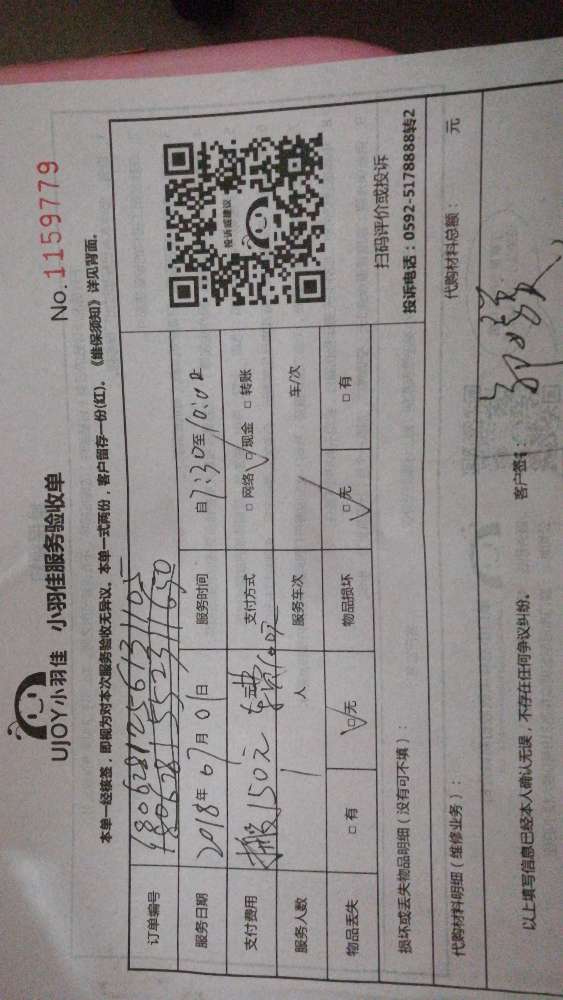 UJOY小羽佳 小羽佳服务验收单
No. 1159779
本单一经核签，即视为对本次服务验收无异议。本单一式两份，客户留存一份(红)。《维保须知》详见背面。
订单编号
服务日期 2018年07月01日 服务时间 自7:30至10:00
支付费用 搬150元 车费100元 支付方式 □网络 ☑现金 □转账
服务人数 1 人 服务车次 / 车/次
物品丢失 □有 ☑无 物品损坏 ☑无 □有
投诉或建议
扫码评价或投诉
投诉电话：0592-5178888转2
损坏或丢失物品明细（没有可不填）：
代购材料明细（维修业务）： 代购材料总额： 元
以上填写信息已经本人确认无误，不存在任何争议纠纷。 客户签：